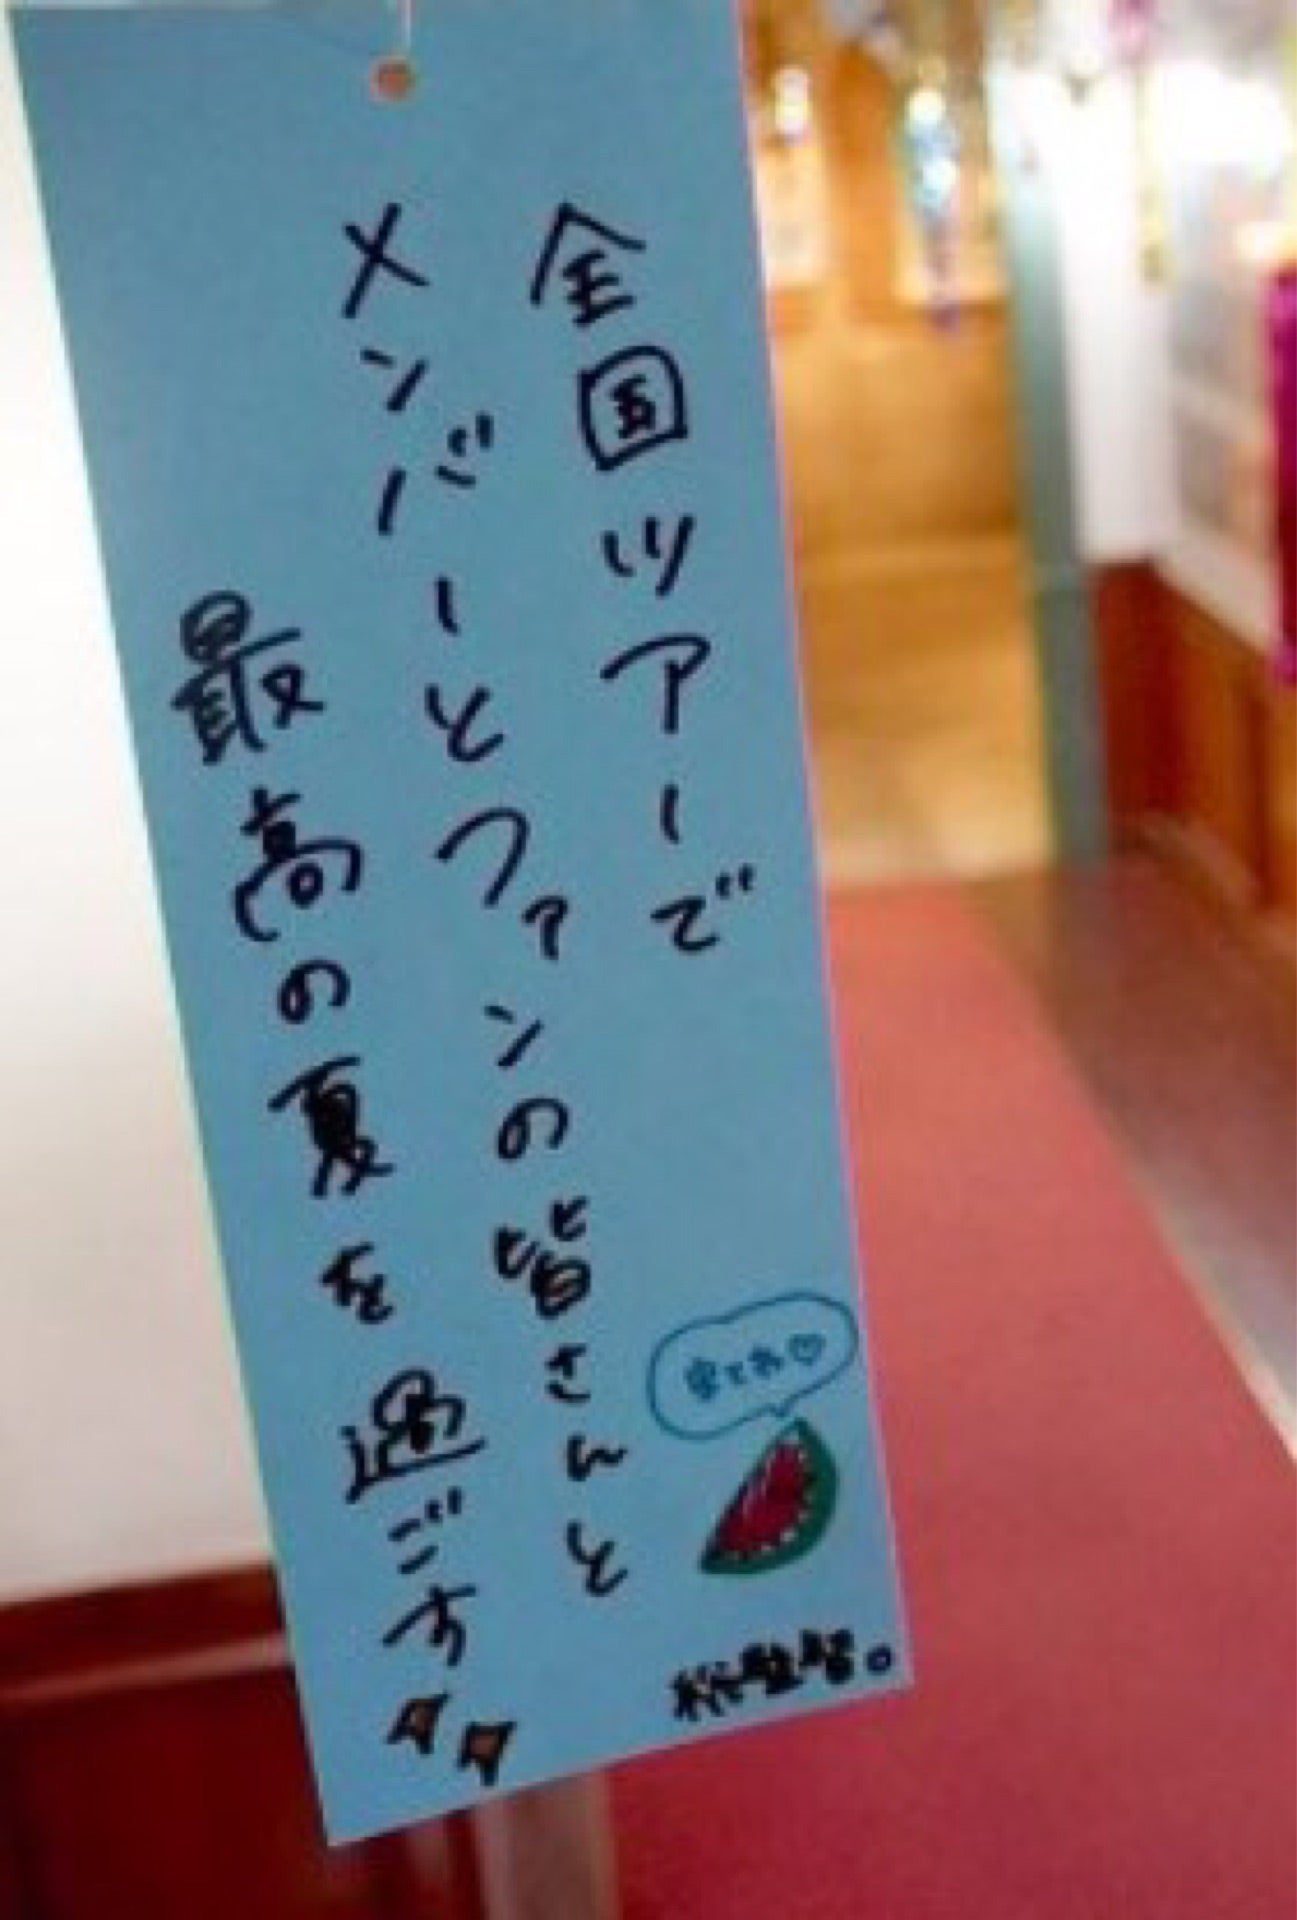 全国ツアーで
メンバーとファンの皆さんと
最高の夏を過ごす